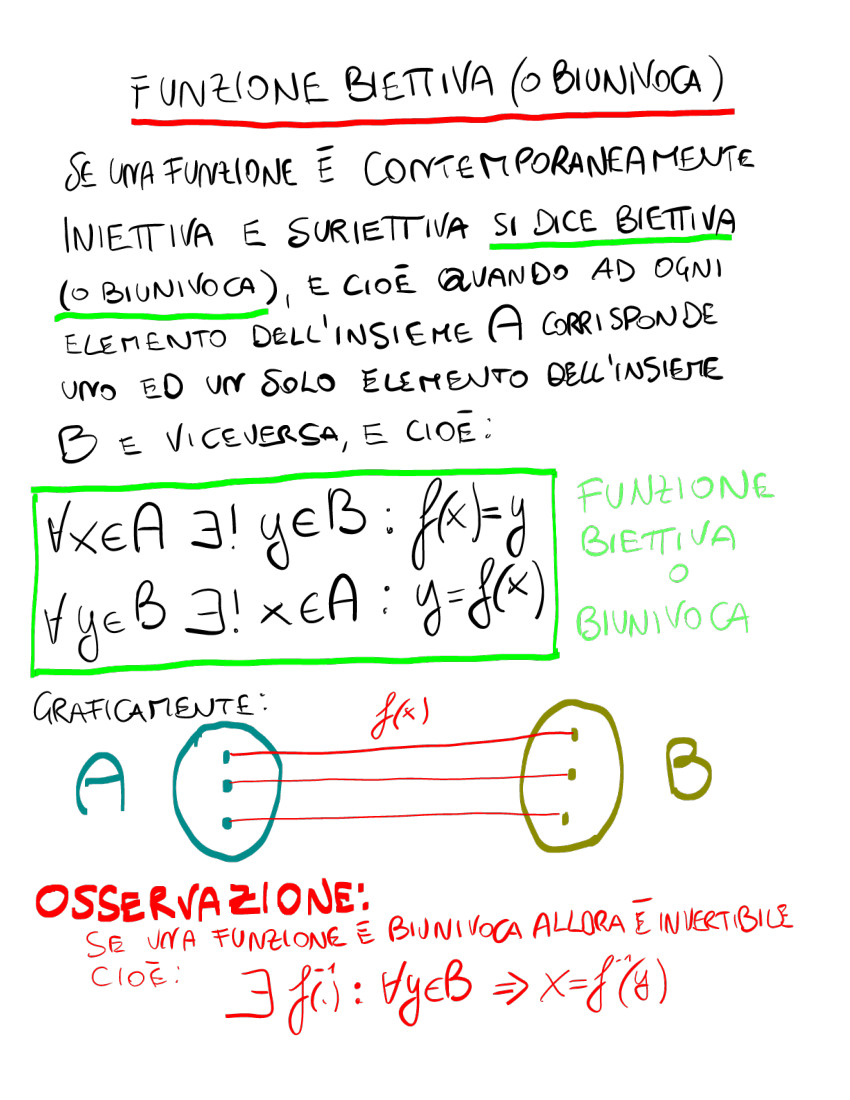 FUNZIONE BIETTIVA (O BIUNIVOCA)
SE UNA FUNZIONE Ē CONTEMPORANEAMENTE
INIETTIVA E SURIETTIVA SI DICE BIETTIVA
(O BIUNIVOCA), E CIOĒ QUANDO AD OGNI
ELEMENTO DELL'INSIEME A CORRISPONDE
UNO ED UN SOLO ELEMENTO DELL'INSIEME
B E VICEVERSA, E CIOĒ:
∀x∈A ∃! y∈B : f(x)=y
∀y∈B ∃! x∈A : y=f(x)
FUNZIONE
BIETTIVA
O
BIUNIVOCA
GRAFICAMENTE:
f(x)
A
B
OSSERVAZIONE:
SE UNA FUNZIONE Ē BIUNIVOCA ALLORA Ē INVERTIBILE
CIOĒ:
∃ f⁻¹(.) : ∀y∈B ⇒ x=f⁻¹(y)